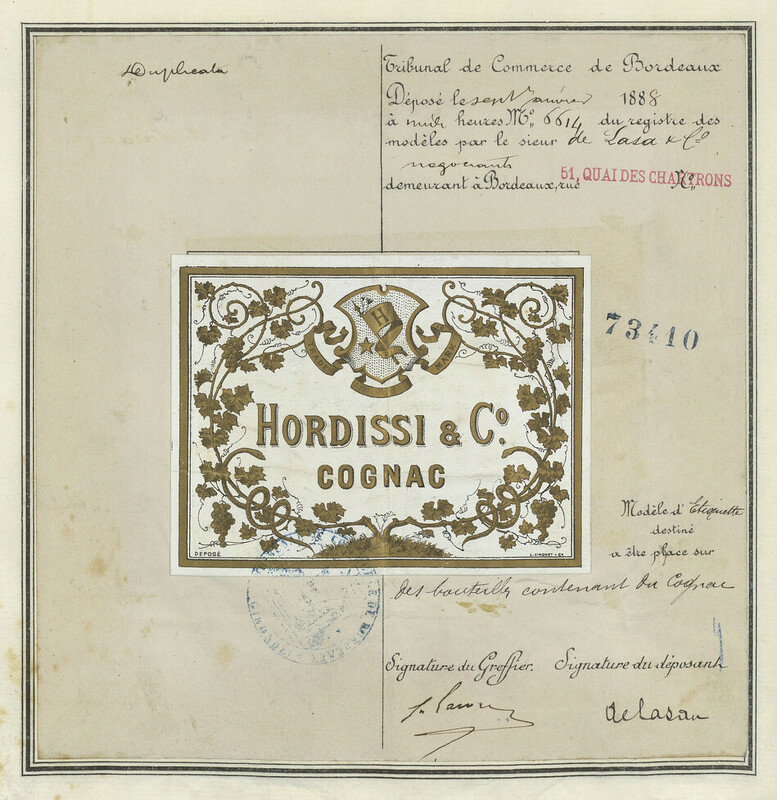 Duplicata
Tribunal de Commerce de Bordeaux
Déposé le sept Janvier 1888
à midi heures No. 6614 du registre des
modèles par le sieur de Lasa & Co
négociants
demeurant à Bordeaux, rue 51, QUAI DES CHARTRONS No.
73410
H
MARK
HORDISSI & Co.
COGNAC
DEPOSÉ
Modèle d'Etiquette
destiné
a être place sur
des bouteilles contenant du Cognac
Signature du Greffier. Signature du déposant
delasa